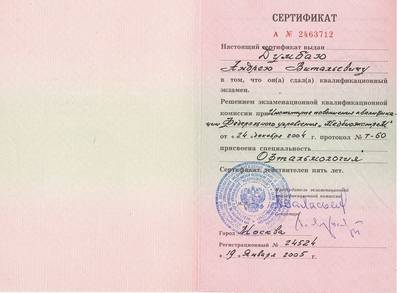 СЕРТИФИКАТ
А № 2463712
Настоящий сертификат выдан
Думбаю
Андрею Витальевичу
в том, что он(а) сдал(а) квалификационный
экзамен.
Решением экзаменационной квалификационной
комиссии при Институте повышения квалифика-
ции Федерального управления „Медбиоэкстрем"
от «24» декабря 2004 г. протокол № Т-60
присвоена специальность
Офтальмология
Сертификат действителен пять лет.
Председатель экзаменационной
квалификационной комиссии
Город Москва
Регистрационный № 24524
«19» Января 2005 г.